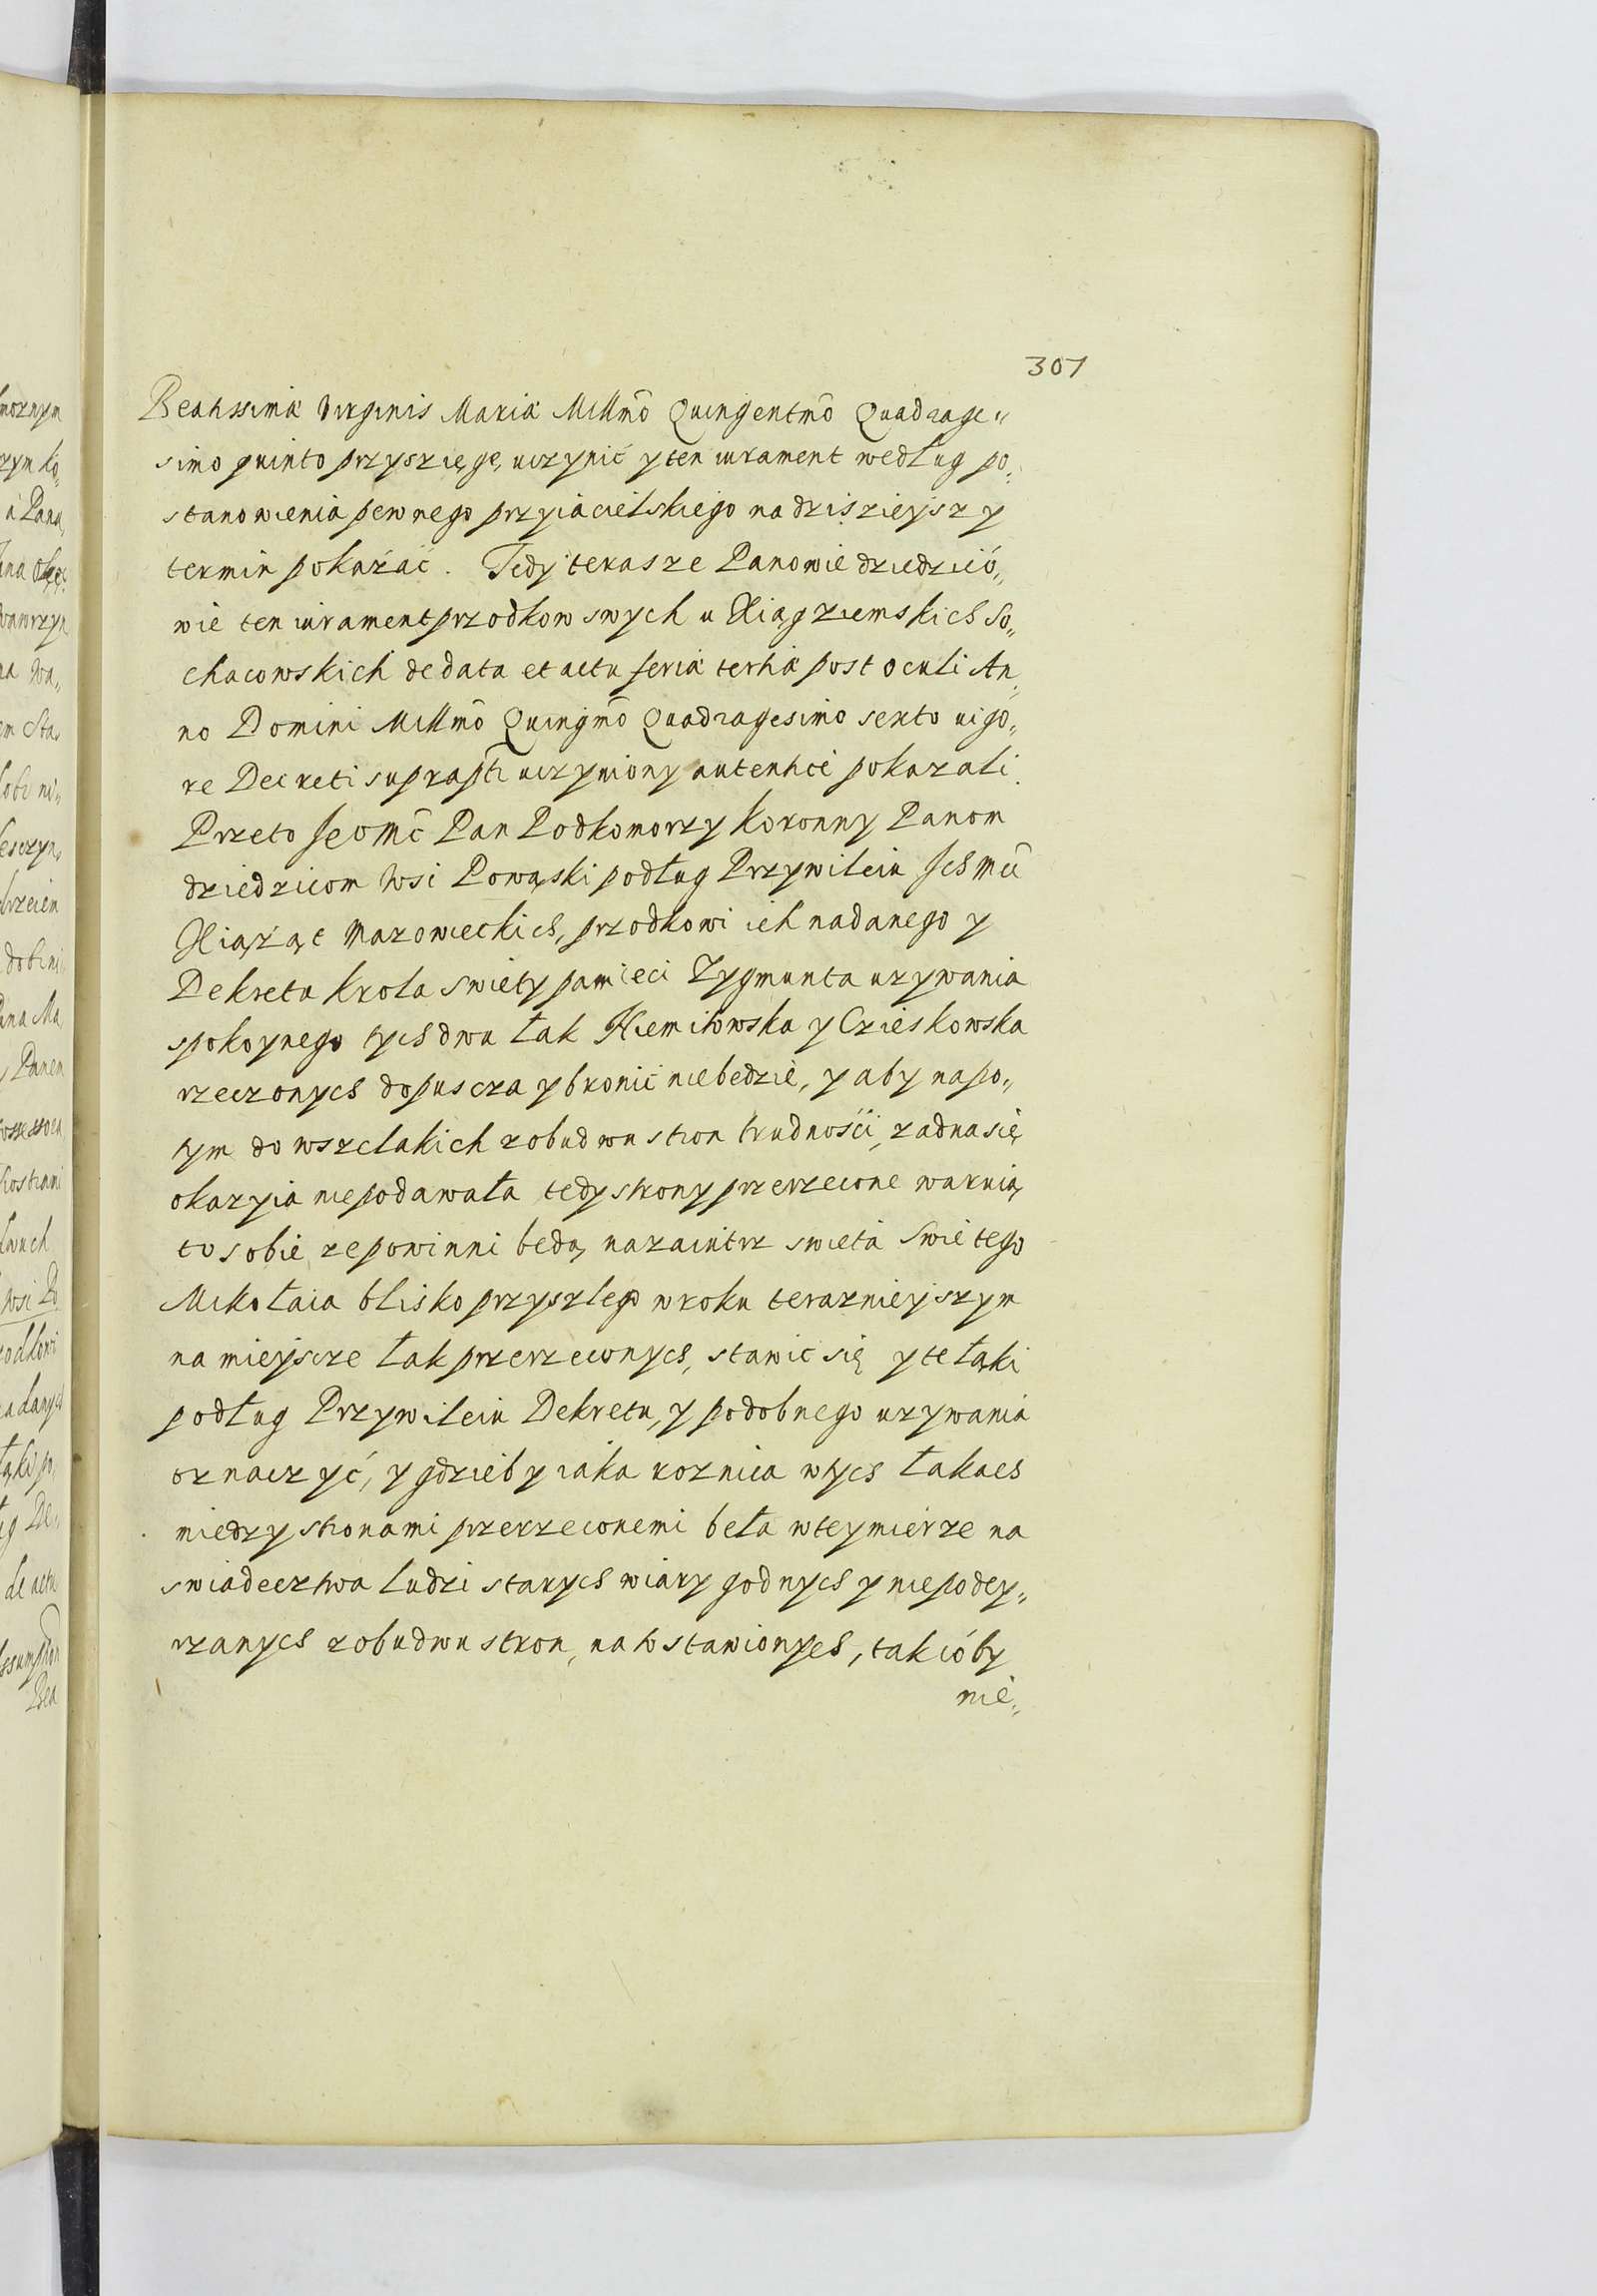 307
Beatissimæ Virginis Mariæ Millmō Quingentmō Quadrage„
simo quinto przysziege uczynić y ten iurament według po„
stanowienia pewnego przyiacielskiego na dzisieyszy
termin pokazać. Tedy terasze Panowie dziedzició„
wie ten iurament przodkow swych u Xiąg ziemskich So„
chacowskich de data et actu feria tertia post oculi An„
no Domini Millmō Quingmō Quadragesimo sexto uigo„
re Decreti suprapti uczyniony autentice pokazali
Przeto Jeomć Pan Podkomorzy Koronny Panom
dziedzicom Wsi Powąski podług Przywileiu Ich Mći
Xiążąt Mazowieckich, przodkowi ich nadanego y
Dekretu Krola swiety pamieci Zygmunta uzywania
spokoynego tych dwu łak Niemiłowska y Czieskowska
rzeczonych dopuscza y bronić niebedzie, y aby napo„
tym do wszelakich zobudwu stron trudnosći, zadna się
okazyia niepodawała tedy strony przerzeczone waruią
to sobie ze powinni bedą nazaiutrz swieta Swietego
Mikołaia blisko przyszlego w roku teraznieyszym
na mieyscze łak przerzeczonych, stawic się y te łąki
podług Przywileiu Dekretu, y podobnego uzywania
oznaczyć, y gdzieby iaka roznica w tych łakach
miedzy stronami przerzeczonemi beła w teymierze na
swiadecztwa ludzi starych wiary godnych y niepodey„
rzanych zobudwu stron, na to stawionych, takióby
nie„
mornym
rzym ko„
a Pana
wawrzyn
na Wa„
em Sta„
brzeiem
y Panem
lwuch
wsi Po
łąki po
de actu
Bea